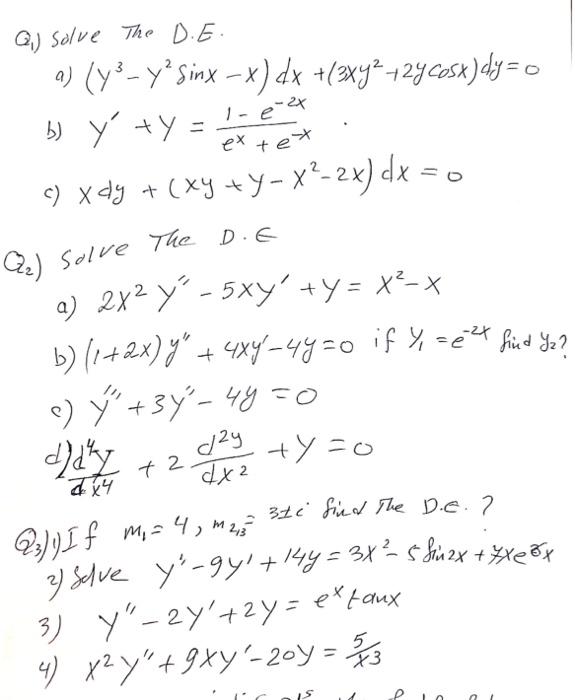 Q1) Solve The D.E.
a) (y³ - y² sinx - x) dx + (3xy² + 2y cosx) dy = 0
b) y' + y = (1 - e^-2x) / (e^x + e^-x) .
c) x dy + (xy + y - x² - 2x) dx = 0
Q2) Solve The D.E
a) 2x² y'' - 5xy' + y = x² - x
b) (1+2x) y'' + 4xy' - 4y = 0 if y₁ = e^-2x find y₂?
c) y''' + 3y'' - 4y = 0
d) d⁴y/dx⁴ + 2 d²y/dx² + y = 0
Q3) 1) If m₁ = 4, m₂,₃ = 3±i find The D.E. ?
2) Solve y'' - 9y' + 14y = 3x² - 5 sin2x + 7xe^
3) y'' - 2y' + 2y = e^x tanx
4) x² y'' + 9xy' - 20y = 5/x³